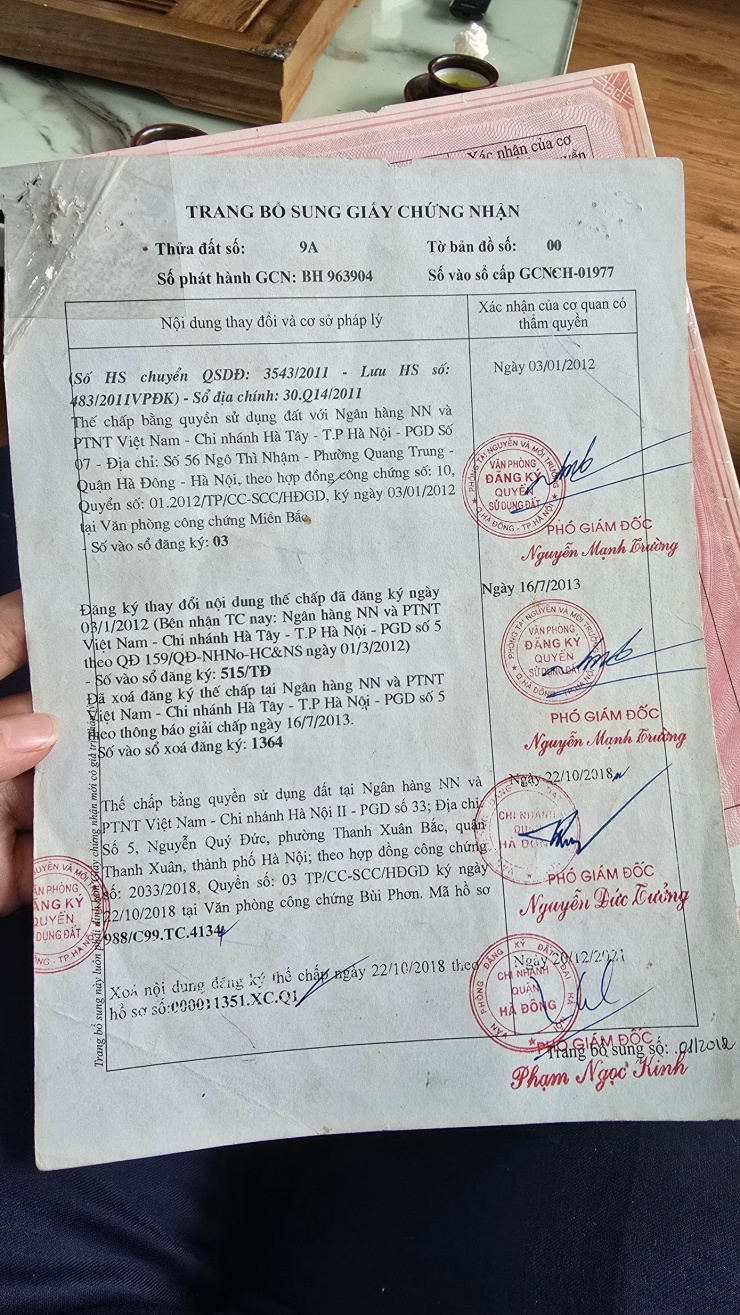 Xác nhận của cơ
TRANG BỔ SUNG GIẤY CHỨNG NHẬN
Thửa đất số: 9A Tờ bản đồ số: 00
Số phát hành GCN: BH 963904 Số vào sổ cấp GCN:CH-01977
Nội dung thay đổi và cơ sở pháp lý
Xác nhận của cơ quan có
thẩm quyền
(Số HS chuyển QSDĐ: 3543/2011 - Lưu HS số:
483/2011VPĐK) - Sổ địa chính: 30.Q14/2011
Thế chấp bằng quyền sử dụng đất với Ngân hàng NN và
PTNT Việt Nam - Chi nhánh Hà Tây - T.P Hà Nội - PGD Số
07 - Địa chỉ: Số 56 Ngô Thì Nhậm - Phường Quang Trung -
Quận Hà Đông - Hà Nội, theo hợp đồng công chứng số: 10,
Quyển số: 01.2012/TP/CC-SCC/HĐGD, ký ngày 03/01/2012
tại Văn phòng công chứng Miền Bắc
- Số vào sổ đăng ký: 03
Ngày 03/01/2012
PHÒNG TÀI NGUYÊN VÀ MÔI TRƯỜNG
VĂN PHÒNG
ĐĂNG KÝ
QUYỀN
SỬ DỤNG ĐẤT
Q.HÀ ĐÔNG - TP.HÀ NỘI
PHÓ GIÁM ĐỐC
Nguyễn Mạnh Trường
Đăng ký thay đổi nội dung thế chấp đã đăng ký ngày
03/1/2012 (Bên nhận TC nay: Ngân hàng NN và PTNT
Việt Nam - Chi nhánh Hà Tây - T.P Hà Nội - PGD số 5
theo QĐ 159/QĐ-NHNo-HC&NS ngày 01/3/2012)
- Số vào sổ đăng ký: 515/TĐ
Đã xoá đăng ký thế chấp tại Ngân hàng NN và PTNT
Việt Nam - Chi nhánh Hà Tây - T.P Hà Nội - PGD số 5
theo thông báo giải chấp ngày 16/7/2013.
Số vào sổ xoá đăng ký: 1364
Ngày 16/7/2013
PHÒNG TÀI NGUYÊN VÀ MÔI TRƯỜNG
VĂN PHÒNG
ĐĂNG KÝ
QUYỀN
SỬ DỤNG ĐẤT
Q.HÀ ĐÔNG - TP.HÀ NỘI
PHÓ GIÁM ĐỐC
Nguyễn Mạnh Trường
Thế chấp bằng quyền sử dụng đất tại Ngân hàng NN và
PTNT Việt Nam - Chi nhánh Hà Nội II - PGD số 33; Địa chỉ:
Số 5, Nguyễn Quý Đức, phường Thanh Xuân Bắc, quận
Thanh Xuân, thành phố Hà Nội; theo hợp đồng công chứng
số: 2033/2018, Quyển số: 03 TP/CC-SCC/HĐGD ký ngày
22/10/2018 tại Văn phòng công chứng Bùi Phơn. Mã hồ sơ
988/C99.TC.4134
Ngày 22/10/2018
CHI NHÁNH
HÀ ĐÔNG
PHÓ GIÁM ĐỐC
Nguyễn Đức Tưởng
Xoá nội dung đăng ký thế chấp ngày 22/10/2018 theo
hồ sơ số:000011351.XC.Q1
Ngày 20/12/2021
VĂN PHÒNG ĐĂNG KÝ ĐẤT ĐAI HÀ NỘI
CHI NHÁNH
QUẬN
HÀ ĐÔNG
PHÓ GIÁM ĐỐC
Phạm Ngọc Kinh
Trang bổ sung số: 01/2012
VĂN PHÒNG
ĐĂNG KÝ
QUYỀN
DỤNG ĐẤT